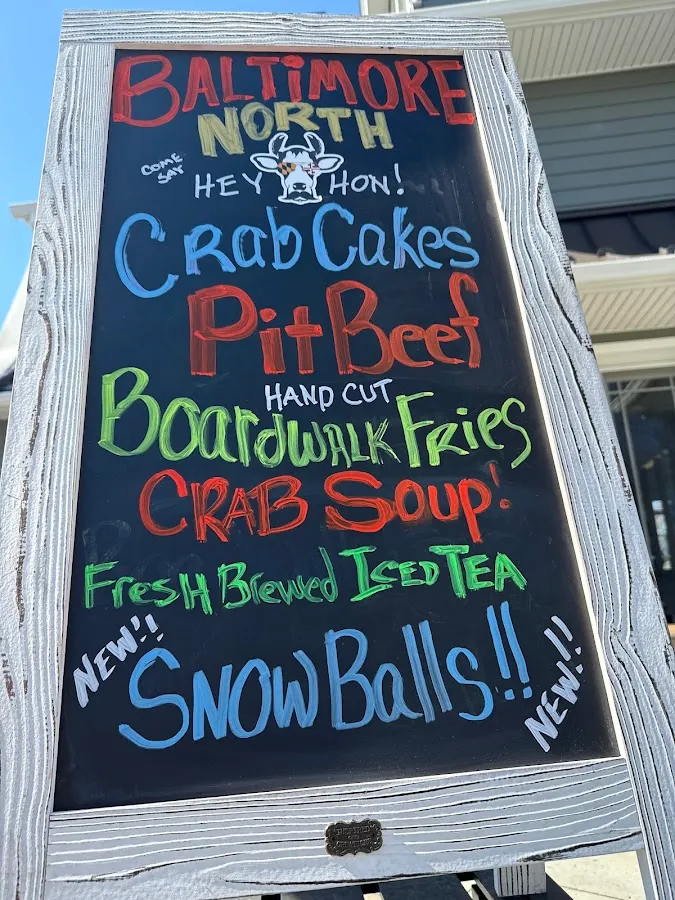 BALTiMORE
NORTH
COME
SAY
HEY HON!
Crab Cakes
Pit Beef
HAND CUT
BoardWALK Fries
CRAB Soup!
FresH Brewed Iced TEA
NEW!!
SNOW Balls!!
NEW!!